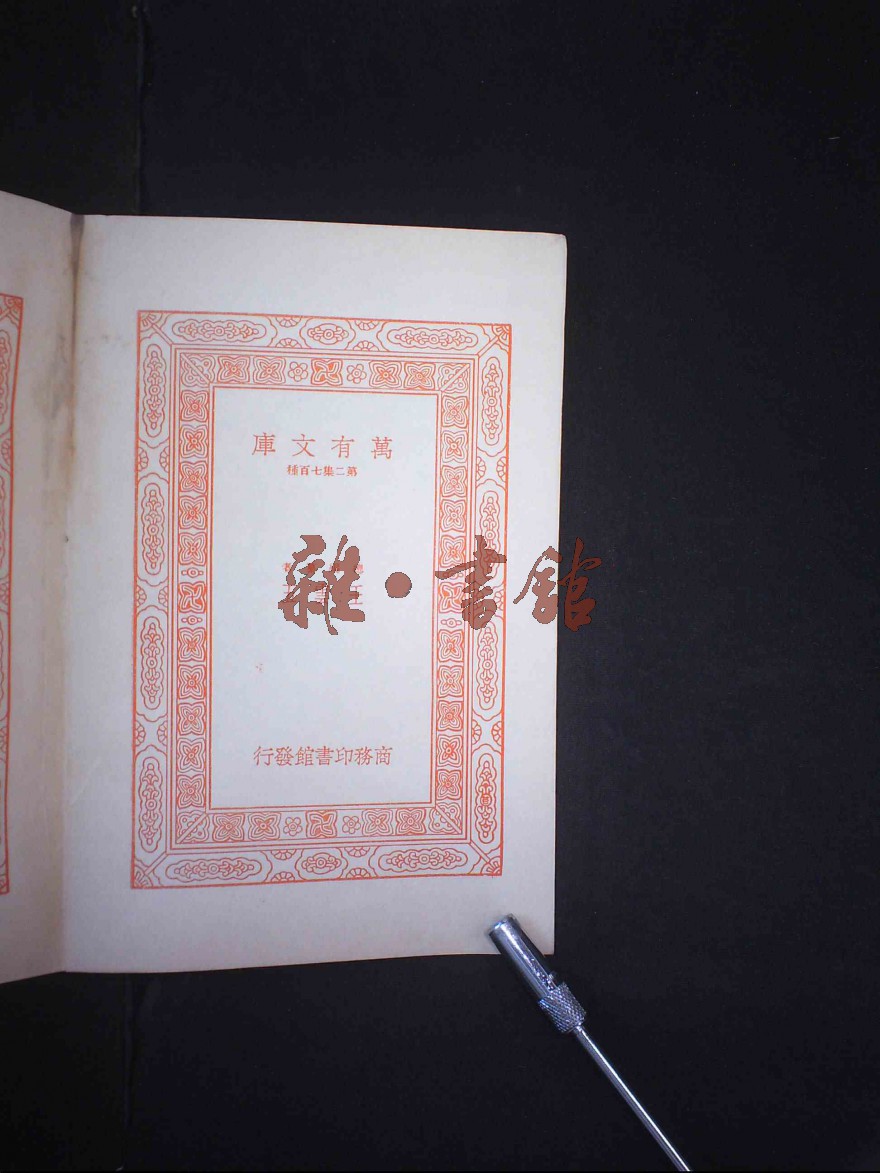 萬有文庫
第二集七百種
雜·書館
商務印書館發行